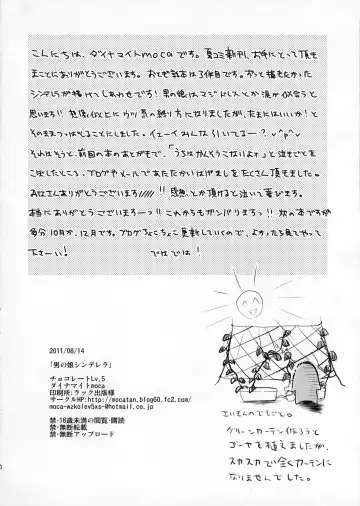 こんにちは、ダイナマイトmocaです。夏コミ新刊、お手にとって頂き
まことにありがとうございます。おとぎ話本は3作目です。ずっと描きたかった
シンデレラが描けてしあわせです！男の娘はマジドレスとか凄か似合うと
思います!! 想像以上にウツ系の終り方になりましたが、たまにはいいか！と
そのままつっぱしることにしました。イエーイみんな引いてるー？v^p^v
それはそうと、前回の本のあとがきで、「うちはかんそうこないよォ」と泣きごとを
こぼしたところ、ブログやメールであたたかいはげましをたくさん頂きました。
みなさんありがとうございます/////!! 感想とか頂けると泣いて喜びます。
本当にありがとうございますーっ!! これからもガンバりまうっ!! 次の本ですが
多分10月か、12月です。ブログちょこちょこ更新していくので、よかったら見てやって
下さーい! ではでは!
2011/08/14
「男の娘シンデレラ」
チョコレートLv.5
ダイナマイトmoca
印刷所:ラック出版様
サークルHP:http://mocatan.blog60.fc2.com/
moca-wzko1ev5xs-@hotmail.co.jp
禁・18歳未満の閲覧・購読
禁・無断転載
禁・無断アップロード
さいきんのできごと。
グリーンカーテン作ろうと
ゴーヤを植えましたが、
スカスカで全くカーテンに
なりませんでした。